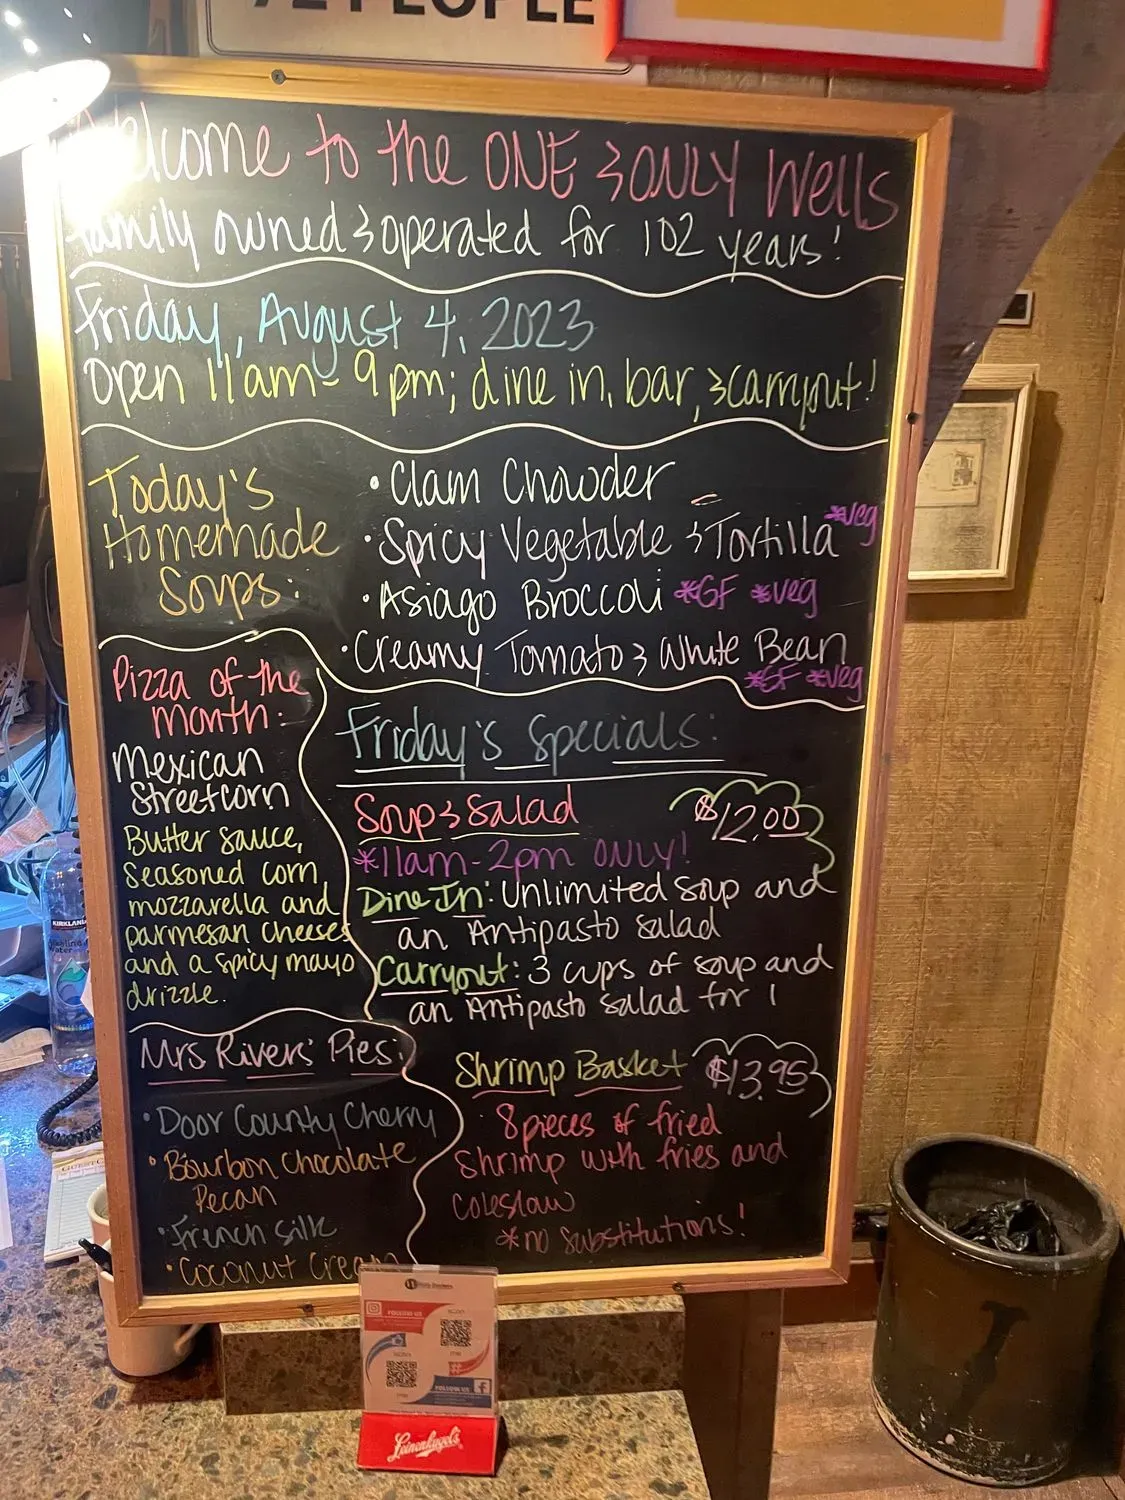 72 PEOPLE
Welcome to the ONE & ONLY Wells
family owned & operated for 102 years!
Friday, August 4, 2023
Open 11am-9pm; dine in, bar, & carryout!
Today's
Homemade
Soups:
• Clam Chowder
• Spicy Vegetable & Tortilla *veg
• Asiago Broccoli *GF *veg
• Creamy Tomato & White Bean
*GF *veg
Pizza of the
month:
Mexican
Streetcorn
Butter sauce,
seasoned corn
mozzarella and
parmesan cheeses
and a spicy mayo
drizzle.
Friday's Specials:
Soup & Salad $12.00
*11am-2pm ONLY!
Dine In: Unlimited soup and
an Antipasto salad
Carryout: 3 cups of soup and
an Antipasto salad for 1
Shrimp Basket $13.95
8 pieces of fried
shrimp with fries and
coleslaw
*no substitutions!
Mrs Rivers' Pies:
• Door County Cherry
• Bourbon Chocolate
Pecan
• French Silk
• Coconut Cream
KIRKLAND
FOLLOW US
SCAN
ME
SCAN
ME
FOLLOW US
Leinenkugel's